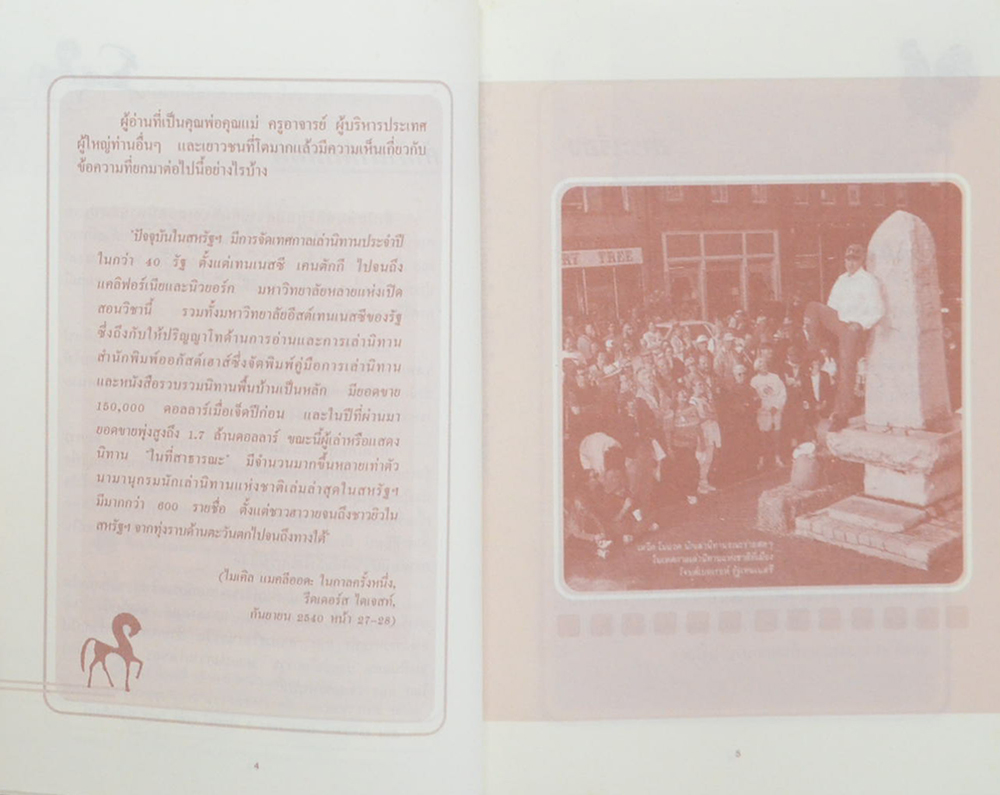 ผู้อ่านที่เป็นคุณพ่อคุณแม่ ครูอาจารย์ ผู้บริหารประเทศ
ผู้ใหญ่ท่านอื่นๆ และเยาวชนที่โตมากแล้วมีความเห็นเกี่ยวกับ
ข้อความที่ยกมาต่อไปนี้อย่างไรบ้าง
"ปัจจุบันในสหรัฐฯ มีการจัดเทศกาลเล่านิทานประจำปี
ในกว่า 40 รัฐ ตั้งแต่เทนเนสซี เคนตักกี ไปจนถึง
แคลิฟอร์เนียและนิวยอร์ก มหาวิทยาลัยหลายแห่งเปิด
สอนวิชานี้ รวมทั้งมหาวิทยาลัยอีสต์เทนเนสซีของรัฐ
ซึ่งถึงกับให้ปริญญาโทด้านการอ่านและการเล่านิทาน
สำนักพิมพ์ออกัสต์เฮาส์ซึ่งจัดพิมพ์คู่มือการเล่านิทาน
และหนังสือรวบรวมนิทานพื้นบ้านเป็นหลัก มียอดขาย
150,000 ดอลลาร์เมื่อเจ็ดปีก่อน และในปีที่ผ่านมา
ยอดขายพุ่งสูงถึง 1.7 ล้านดอลลาร์ ขณะนี้ผู้เล่าหรือแสดง
นิทาน "ในที่สาธารณะ" มีจำนวนมากขึ้นหลายเท่าตัว
นามานุกรมนักเล่านิทานแห่งชาติเล่มล่าสุดในสหรัฐฯ
มีมากกว่า 600 รายชื่อ ตั้งแต่ชาวฮาวายจนถึงชาวยิวใน
สหรัฐฯ จากทุ่งราบด้านตะวันตกไปจนถึงทางใต้"
(ไมเคิล แมคลีออด: ในกาลครั้งหนึ่ง,
รีดเดอร์ส ไดเจสท์,
กันยายน 2540 หน้า 27-28)
4
RY TREE
ในเทศกาลเล่านิทานแห่งชาติที่เมือง
รัฐเทนเนสซี
5